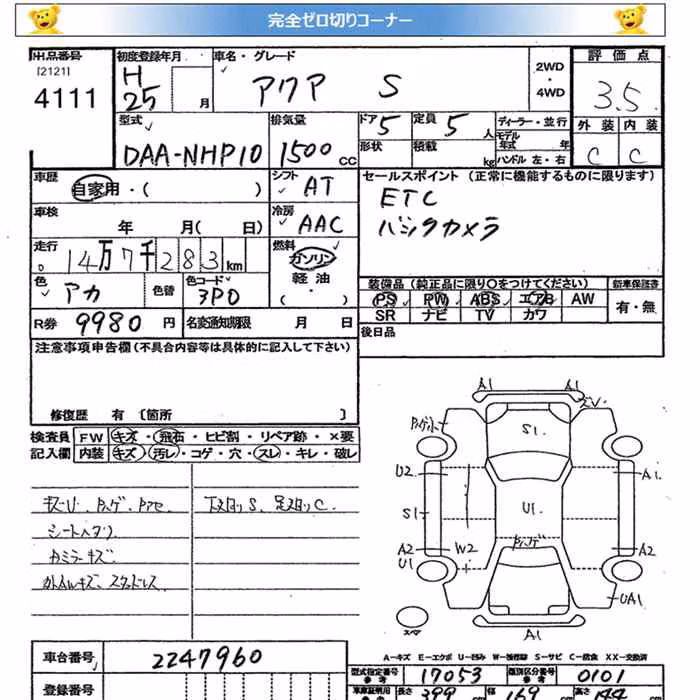 完全ゼロ切りコーナー
出品番号 初度登録年月 車名・グレード 評価点
[2121] H アクア S 2WD・4WD 3.5
4111 25 月
型式 排気量 ドア 5 定員 5 人 ディーラー・並行 外装 内装
DAA-NHP10 1500 CC 形状 積載 kg モデル年式 年 ハンドル 左・右 C C
車歴 自家用・( ) シフト AT セールスポイント (正常に機能するものに限ります)
車検 年 月( 日) 冷房 AAC ETC
バックカメラ
走行 14万7千283km 燃料 ガソリン
軽油
・( )
色 アカ 色替 色コード 3P0 装備品 (純正品に限り○をつけてください) 新車保証書
PS PW ABS エアB AW 有・無
R券 9980 円 名変通知期限 月 日 SR ナビ TV カワ
注意事項申告欄 (不具合内容等は具体的に記入して下さい) 後日品
修復歴 有 〔箇所 〕
検査員 FW キズ・飛石・ヒビ割・リペア跡・×要
記入欄 内装 キズ・汚レ・コゲ・穴・スレ・キレ・破レ
シートヘタリ
カミラーキズ
A1 A1
S1
U2 A1
S1 U1
A2 W2 A2
U1
UA1
スペア A1
A-キズ E-エクボ U-凹み W-補修跡 S-サビ C-腐食 XX-交換済
車台番号 2247960
登録番号 型式指定番号 17053 類別区分番号 0101
参考 参考
長さ 399 幅 169 高さ 144